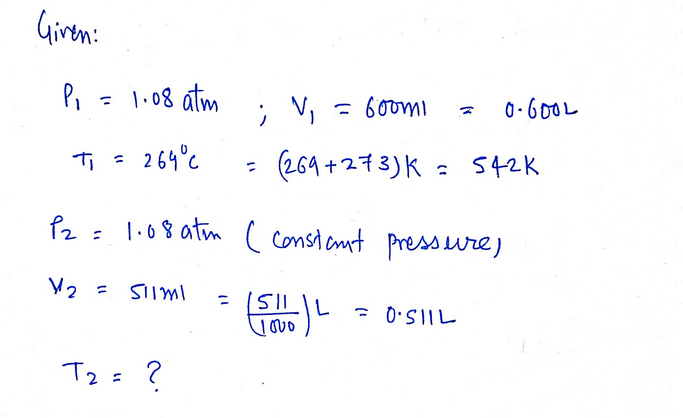 Given:
P₁ = 1.08 atm ; V₁ = 600ml = 0.600L
T₁ = 269°C = (269+273)K = 542K
P₂ = 1.08 atm (constant pressure)
V₂ = 511ml = (511/1000)L = 0.511L
T₂ = ?